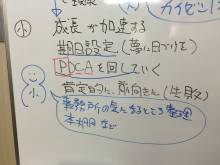 小 成長が加速する
期日設定(夢に日づけを)
PDCAを回していく
肯定的に、前向きに(生取)
小
事務所の気になるところ 整理
本棚 など